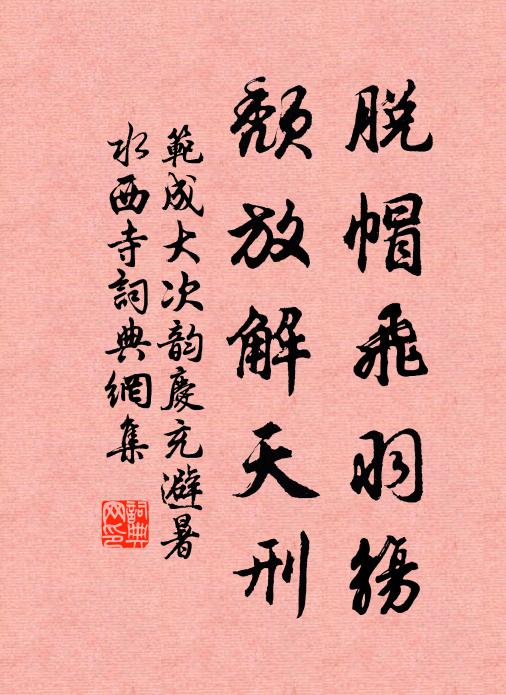 脱帽飛羽觴
頹放解天刑
範成大次韵慶充避暑
水西寺詞典網集
詞典網印